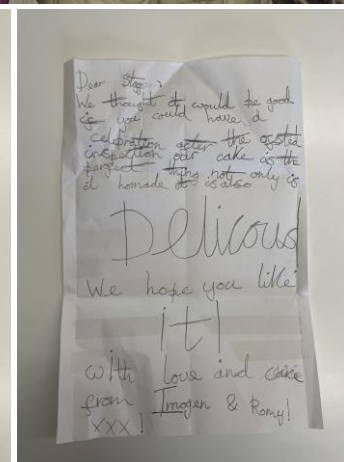 Dear
We thought it would be good
if you could have a
celebration after the ofsted
inspection our cake is the
perfect thing not only is
it homade it is also
Delicous
We hope you like
it!
with love and cake
from Imogen & Romy!
XXX!